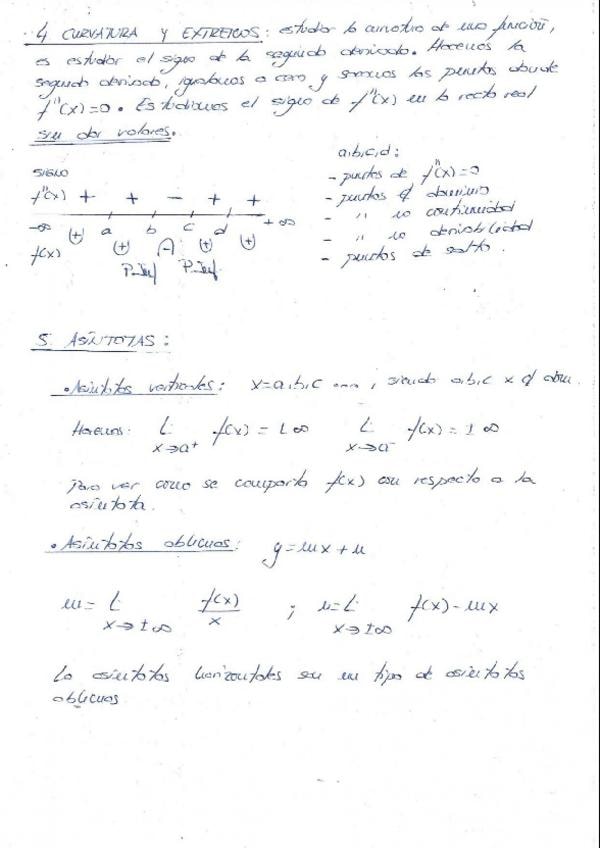 4 CURVATURA Y EXTREMOS: estudiar la curvatura de una función,
es estudiar el signo de la segunda derivada. Hacemos la
segunda derivada, igualamos a cero y sacamos los puntos donde
f''(x)=0. Estudiamos el signo de f''(x) en la recta real
sin dar valores.
SIGNO
f''(x) + + - + +
-∞ a b c d +∞
f(x) (+) (+) (+) (+)
P. Inf P. Inf
a,b,c,d:
- puntos de f''(x)=0
- puntos ∉ dominio
- " no continuidad
- " no derivabilidad
- puntos de salto.
5. ASÍNTOTAS:
• Asíntotas verticales: x=a,b,c ..., siendo a,b,c x ∉ dom.
Hacemos: L x→a⁺ f(x) = ±∞ L x→a⁻ f(x) = ±∞
Para ver como se comporta f(x) con respecto a la
asíntota.
• Asíntotas oblicuas: y=mx+n
m= L x→±∞ f(x)/x ; n= L x→±∞ f(x)-mx
La asíntotas horizontales son un tipo de asíntotas
oblicuas